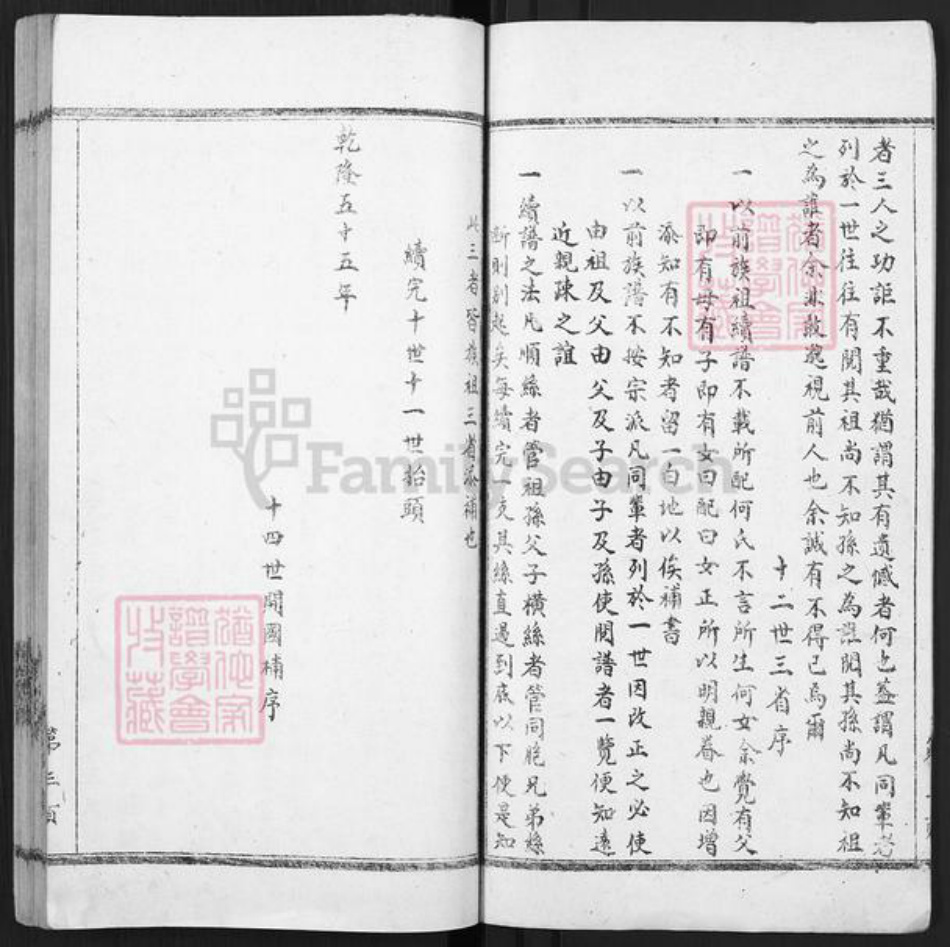 者三人之功詎不重哉猶謂其有遺憾者何也蓋謂凡同輩者
列於一世往往有閱其祖尚不知孫之為誰閱其孫尚不知祖
之為誰者余非敢藐視前人也余誠有不得已焉爾
十二世三省序
一以前族祖續譜不載所配何氏不言所生何女余覺有父
即有母有子即有女曰配曰女正所以明親眷也因增
添知有不知者留一白地以俟補書
一以前族譜不按宗派凡同輩者列於一世因改正之必使
由祖及父由父及子由子及孫使閱譜者一覽便知遠
近親疎之誼
一續譜之法凡順絲者管祖孫父子橫絲者管同胞兄弟絲
斷則別起矣每續完一支其絲直過到底以下便是知
此三者皆族祖三省添補也
續完十世十一世抬頭
十四世開國補序
乾隆五十五年
第三頁
猶他家
譜學會
收藏
猶他家
譜學會
收藏
FamilySearch